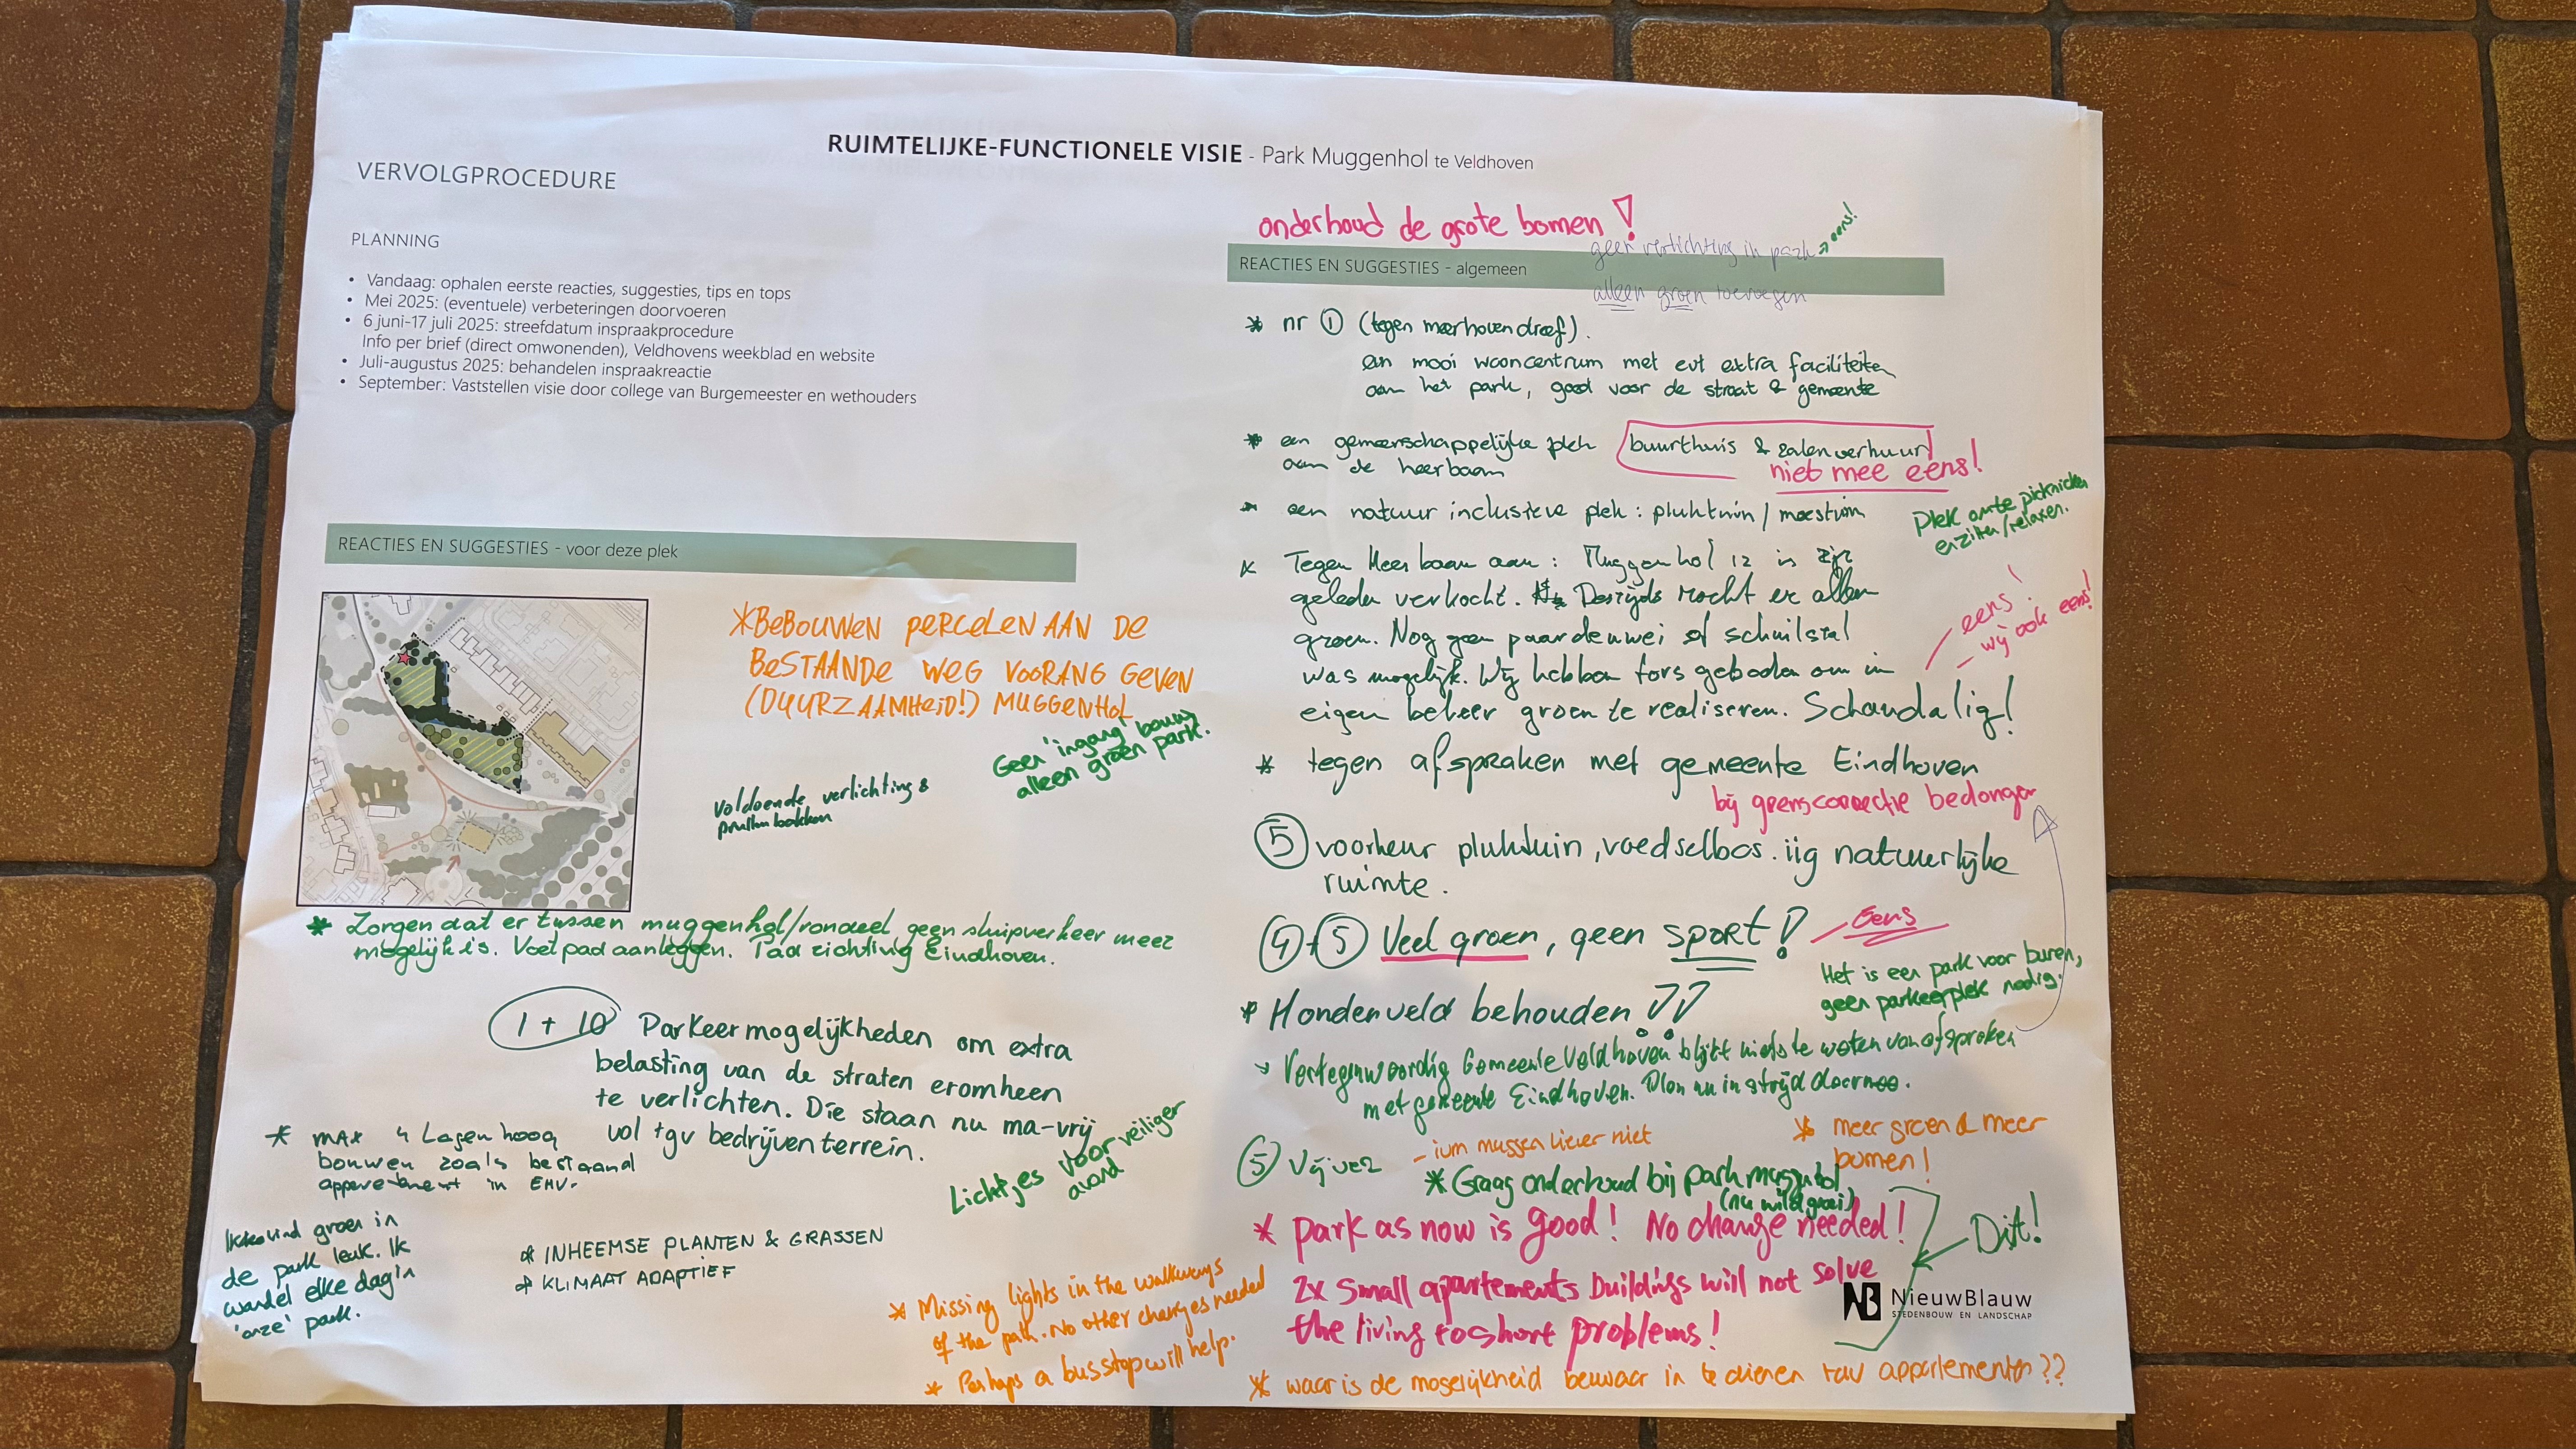 RUIMTELIJKE-FUNCTIONELE VISIE - Park Muggenhol te Veldhoven
VERVOLGPROCEDURE
PLANNING
• Vandaag: ophalen eerste reacties, suggesties, tips en tops
• Mei 2025: (eventuele) verbeteringen doorvoeren
• 6 juni-17 juli 2025: streefdatum inspraakprocedure
Info per brief (direct omwonenden), Veldhovens weekblad en website
• Juli-augustus 2025: behandelen inspraakreactie
• September: Vaststellen visie door college van Burgemeester en wethouders
REACTIES EN SUGGESTIES - voor deze plek
*BEBOUWEN PERCELEN AAN DE
BESTAANDE WEG VOORANG GEVEN
(DUURZAAMHEID!) MUGGENHOL
Geen 'ingang' bouw
alleen groen park.
voldoende verlichting &
* Zorgen dat er tussen muggenhol/rondeel geen sluipverkeer meer
mogelijk is. Voetpad aanleggen. Pad richting Eindhoven.
1 + 10 Parkeermogelijkheden om extra
belasting van de straten eromheen
te verlichten. Die staan nu ma-vrij
vol tgv bedrijventerrein.
* MAX 4 Lagen hoog
bouwen zoals bestaand
in EHV.
Lichtjes voor veiliger
avond
Ik vind groen in
de park leuk. Ik
wandel elke dag in
'onze' park.
* INHEEMSE PLANTEN & GRASSEN
* KLIMAAT ADAPTIEF
* Missing lights in the walkways
of the path. No other changes needed
* Perhaps a busstop will help.
onderhoud de grote bomen!
geen verlichting in park → eens!
REACTIES EN SUGGESTIES - algemeen
alleen groen toevoegen
* nr ① (tegen meerhovendreef).
een mooi wooncentrum met evt extra faciliteiten
aan het park, goed voor de straat & gemeente
* een gemeenschappelijke plek buurthuis & zalenverhuur
aan de heerbaan
niet mee eens!
* een natuur inclusieve plek: pluktuin / moestuin
Plek om te picknicken
en zitten/relaxen.
* Tegen Heerbaan aan: Muggenhol 12 is
geleden verkocht. Destijds mocht er alleen
groen. Nog geen paardenwei of schuilstal
was mogelijk. Wij hebben fors geboden om in
eigen beheer groen te realiseren. Schandalig!
eens!
- wij ook eens!
* tegen afspraken met gemeente Eindhoven
bij grenscorrectie bedongen
⑤ voorkeur pluktuin, voedselbos. iig natuurlijke
ruimte.
④+⑤ Veel groen, geen SPORT! Eens
Het is een park voor buren,
geen parkeerplek nodig.
* Hondenveld behouden!!
→ Vertegenwoordig Gemeente Veldhoven blijkt niets te weten van afspraken
met gemeente Eindhoven. Plan nu in strijd daarmee.
⑤ Vijver - ivm muggen liever niet
* meer groen & meer
bomen!
* Graag onderhoud bij park muggenhol
(nu wildgroei)
* park as now is good! No change needed!
2x Small apartements buildings will not solve
the living problems!
Dit!
NB NieuwBlauw
STEDENBOUW EN LANDSCHAP
* waar is de mogelijkheid bezwaar in te dienen tav appartementen??